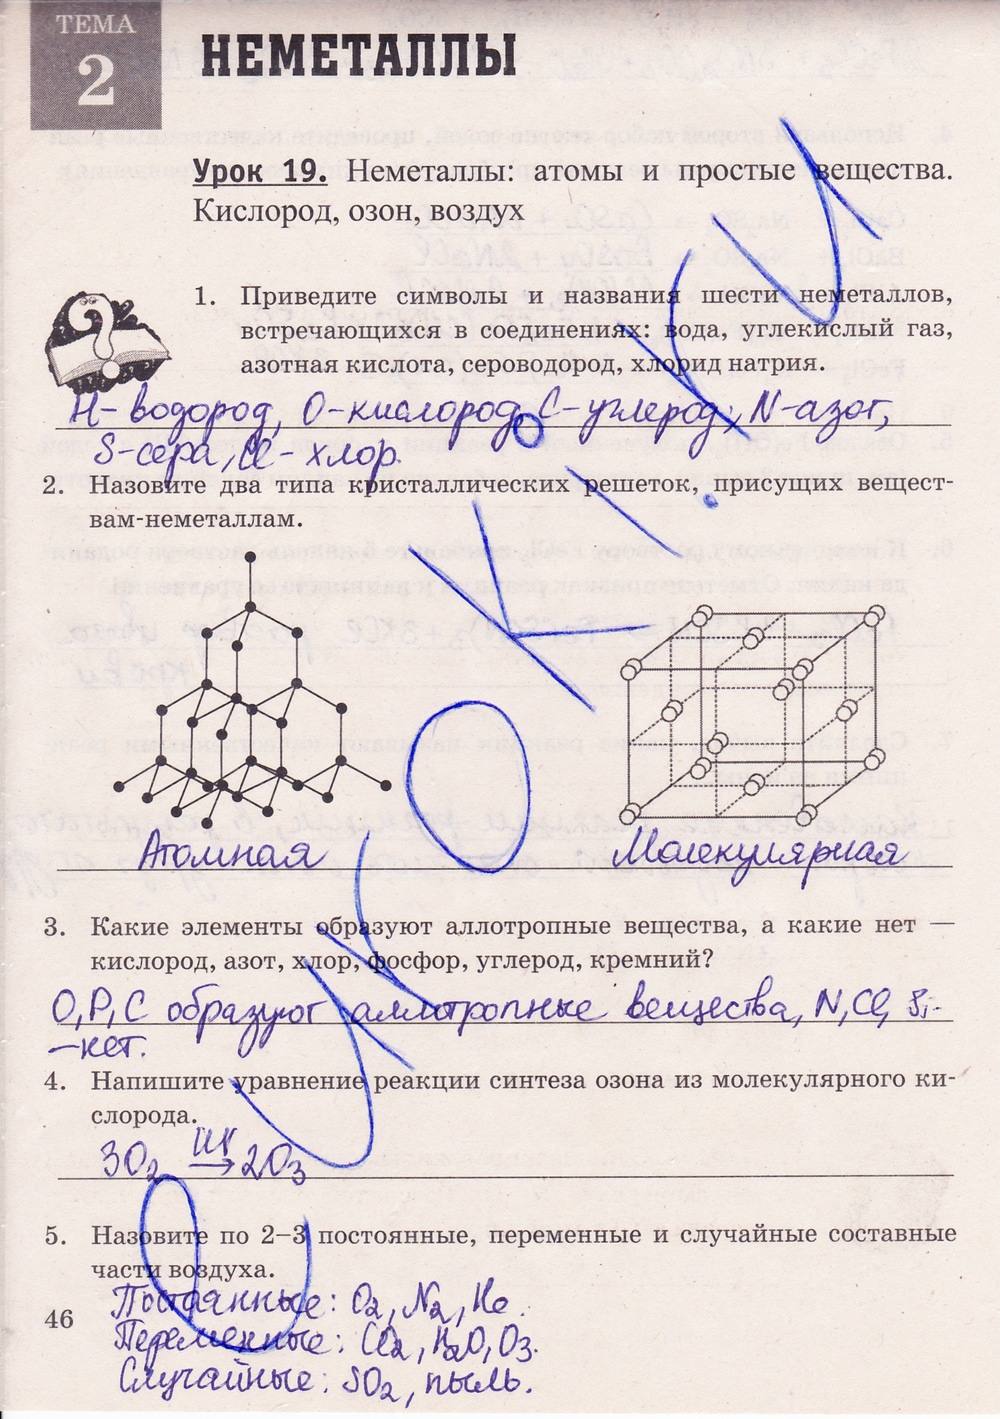 ТЕМА
2
НЕМЕТАЛЛЫ
Урок 19. Неметаллы: атомы и простые вещества.
Кислород, озон, воздух
1. Приведите символы и названия шести неметаллов,
встречающихся в соединениях: вода, углекислый газ,
азотная кислота, сероводород, хлорид натрия.
H- водород, O-кислород, C-углерод, N-азот,
S-сера, Cl - хлор.
2. Назовите два типа кристаллических решеток, присущих вещест-
вам-неметаллам.
Атомная Молекулярная
3. Какие элементы образуют аллотропные вещества, а какие нет —
кислород, азот, хлор, фосфор, углерод, кремний?
O, P, C образуют аллотропные вещества, N, Cl, Si-
-нет.
4. Напишите уравнение реакции синтеза озона из молекулярного ки-
слорода.
3O₂ → 2O₃
5. Назовите по 2–3 постоянные, переменные и случайные составные
части воздуха.
Постоянные: O₂, N₂, He.
46
Переменные: CO₂, H₂O, O₃.
Случайные: SO₂, пыль.